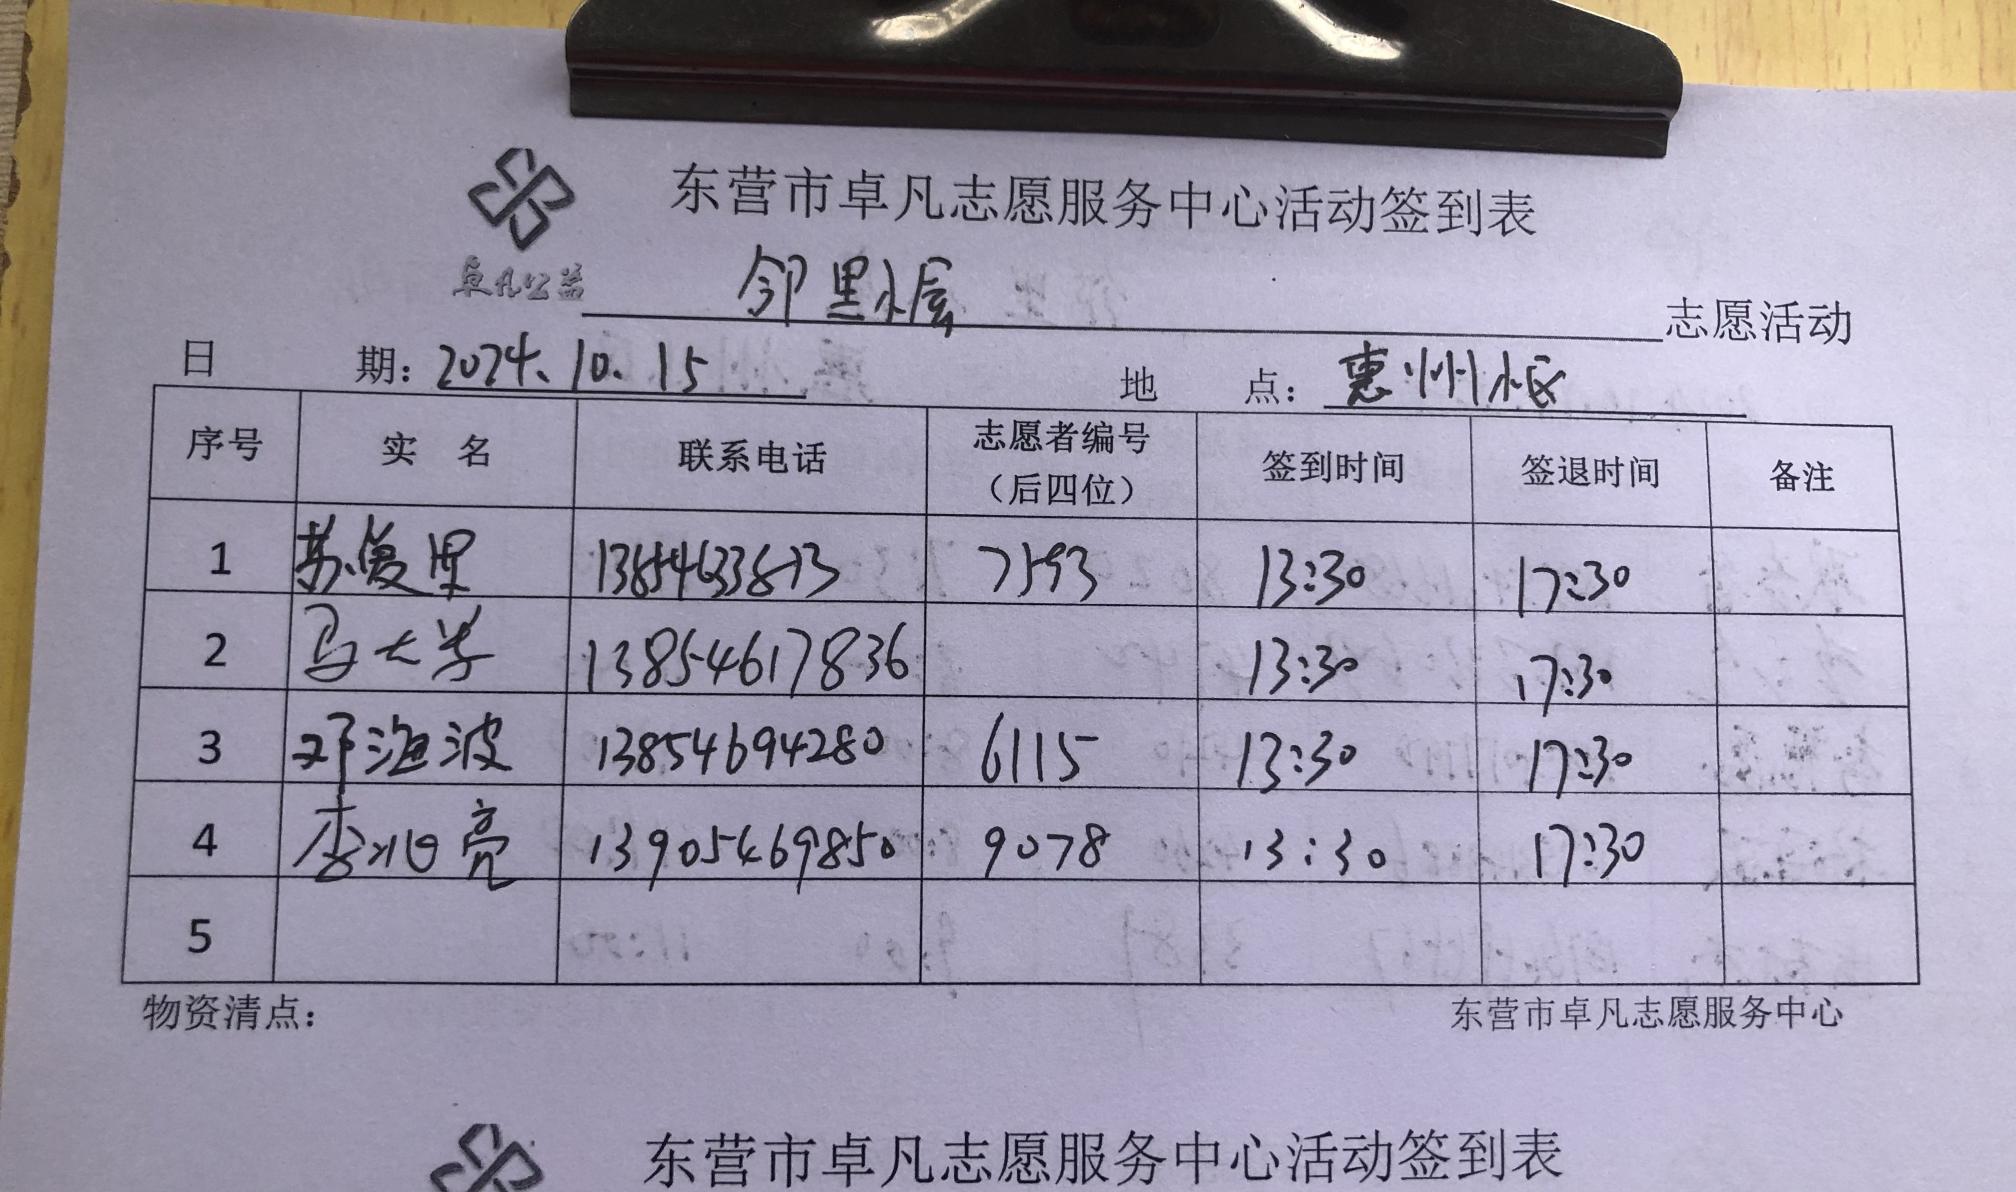 东营市卓凡志愿服务中心活动签到表
卓凡公益
邻里 志愿活动
日 期：2024.10.15 地 点：惠州
序号 实 名 联系电话 志愿者编号（后四位） 签到时间 签退时间 备注
1 苏 13854633873 7593 13:30 17:30
2 马 13854617836 13:30 17:30
3 邓海波 13854694280 6115 13:30 17:30
4 李兆亮 13905469850 9078 13:30 17:30
5
物资清点： 东营市卓凡志愿服务中心
东营市卓凡志愿服务中心活动签到表